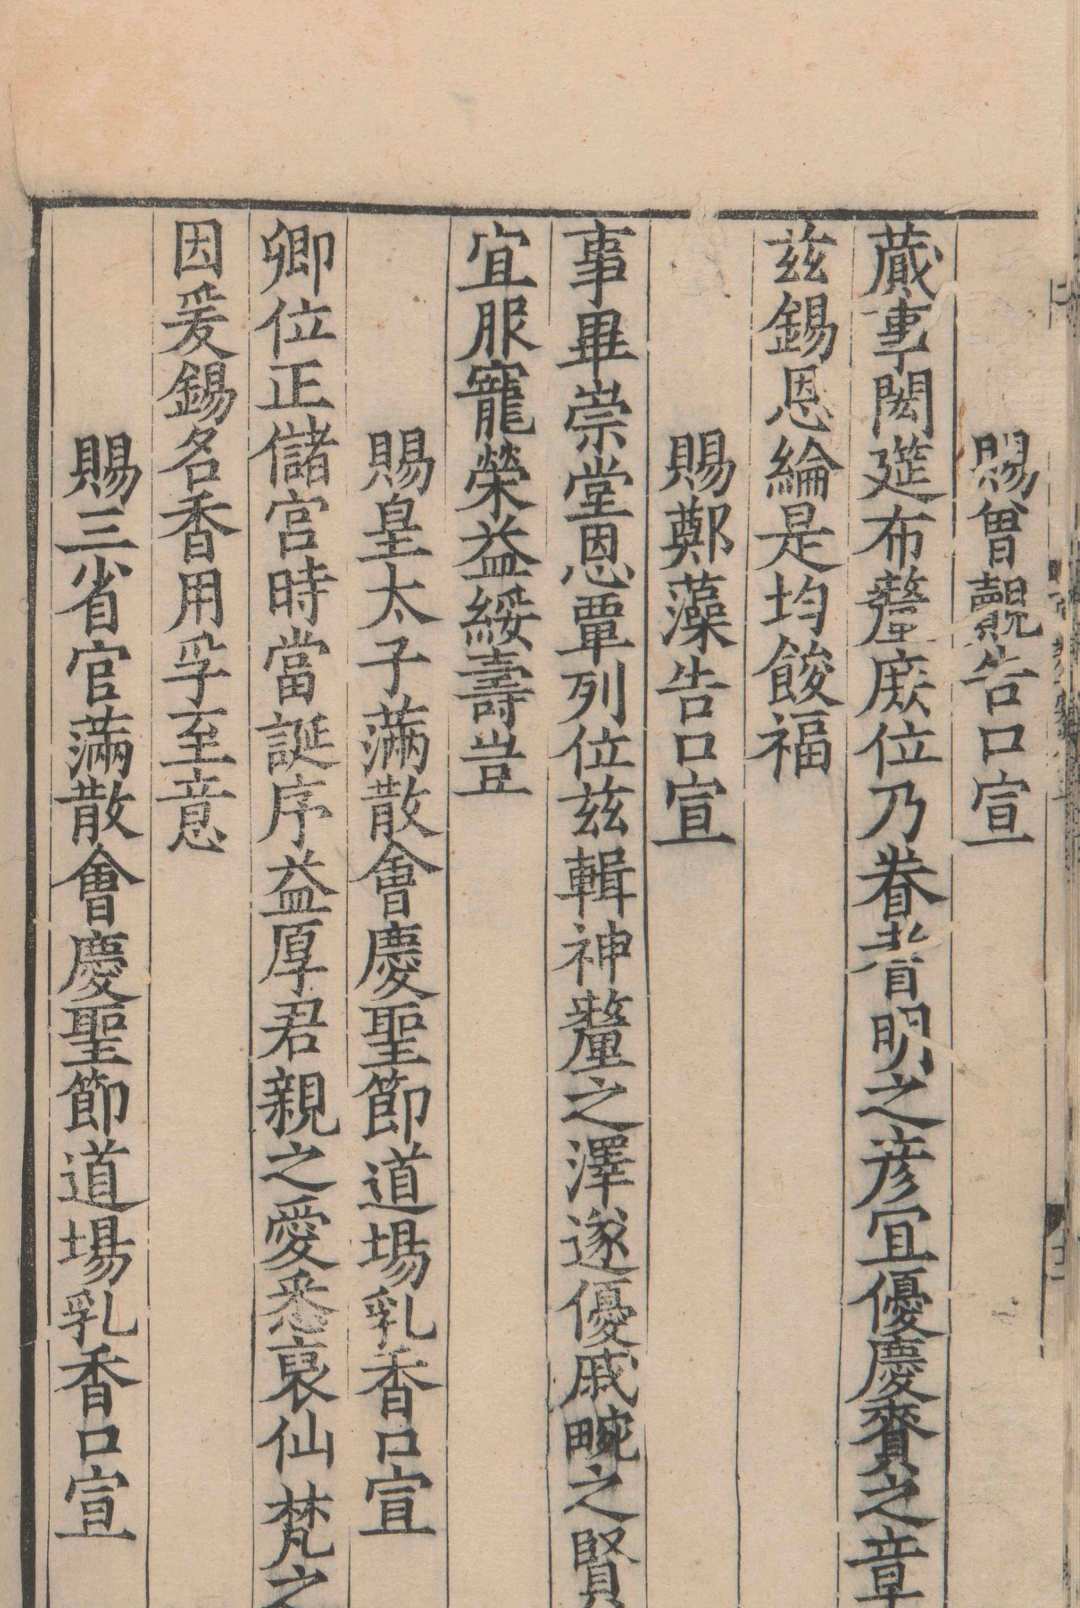 賜曾覿告口宣
蕆事閎筵布釐庶位乃眷耆明之彦宜優慶賚之章
兹錫恩綸是均餕福
賜鄭藻告口宣
事畢崇堂恩覃列位兹輯神釐之澤遂優戚畹之賢
宜服寵榮益綏壽豈
賜皇太子滿散會慶聖節道場乳香口宣
卿位正儲宫時當誕序益厚君親之愛悉裒仙梵之
因爰錫名香用孚至意
賜三省官滿散會慶聖節道場乳香口宣